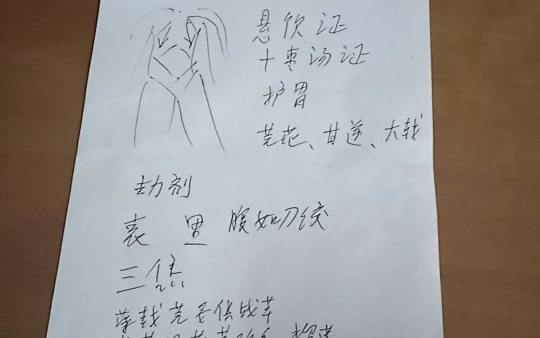 悬饮证
十枣汤证
护胃
芫花、甘遂、大戟
劫剂
表 里 腹如刀绞
三焦
藻戟芫遂俱战草